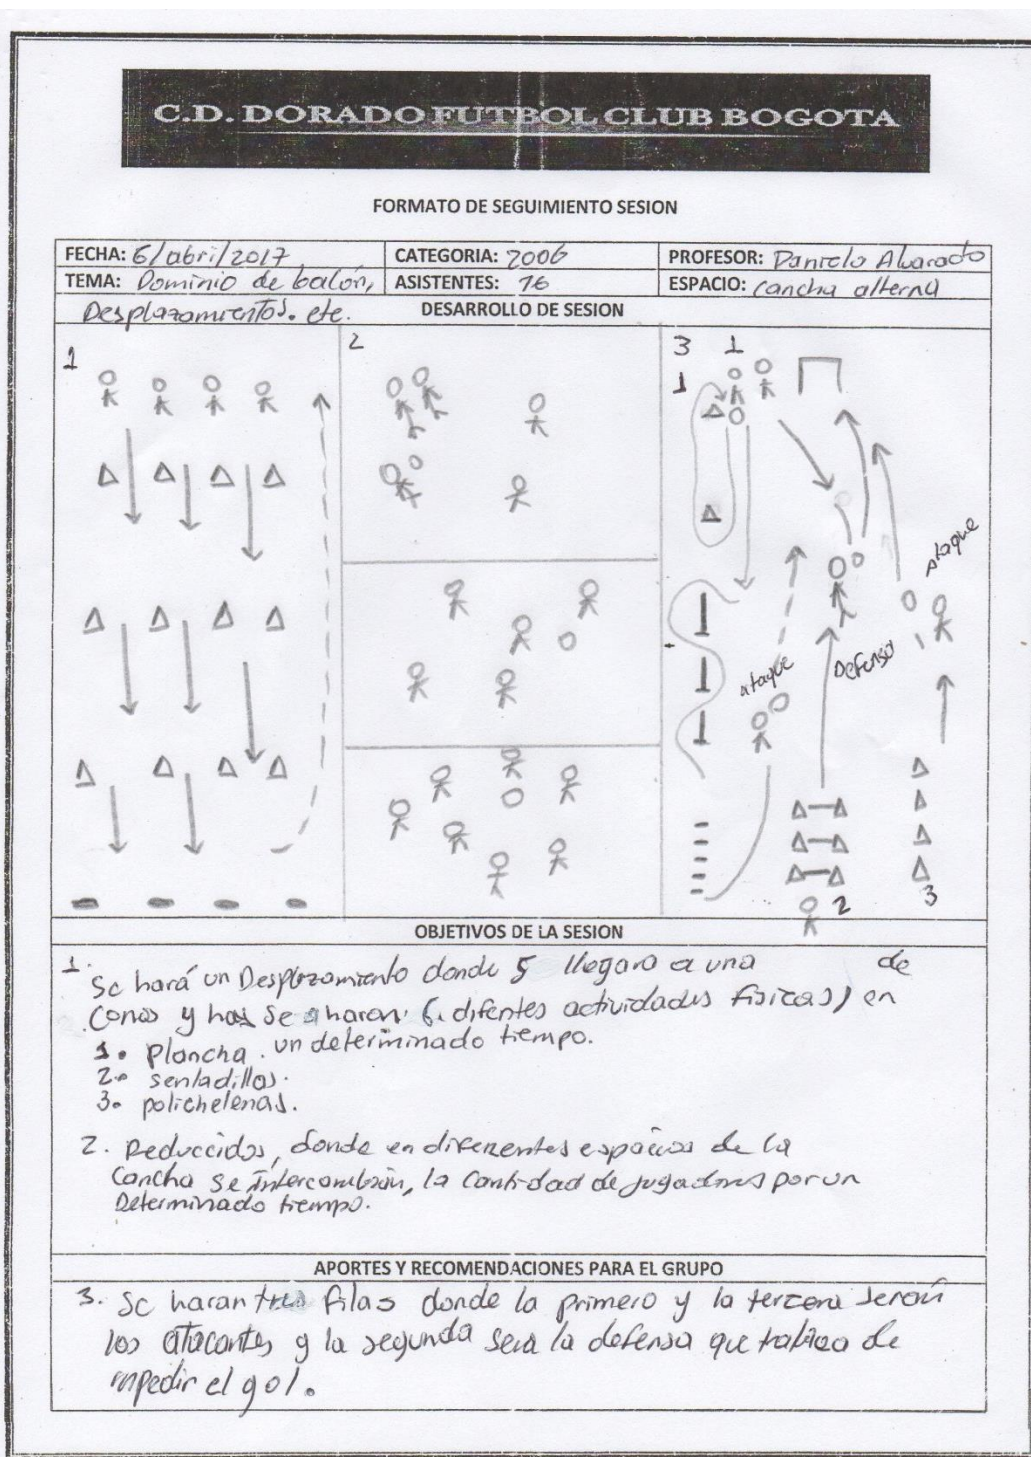 C.D. DORADO FUTBOL CLUB BOGOTA
FORMATO DE SEGUIMIENTO SESION
FECHA: 6/abril/2017 CATEGORIA: 2006 PROFESOR: Daniela Alvarado
TEMA: Dominio de balón, ASISTENTES: 16 ESPACIO: cancha alterna
Desplazamientos. etc. DESARROLLO DE SESION
1 2 3 1
1
ataque
ataque
Defensa
2 3
OBJETIVOS DE LA SESION
1. Se hará un Desplazamiento donde 5 llegara a una de
conos y se haran 6. difentes actividades fisicas) en
1. plancha. un determinado tiempo.
2. sentadillas.
3. polichelenas.
2. Reduccidos, donde en diferentes espacios de la
Cancha se intercambian, la Cantidad de jugadores por un
Determinado tiempo.
APORTES Y RECOMENDACIONES PARA EL GRUPO
3. Se haran tres filas donde la primero y la tercera seran
los atacantes y la segunda sera la defensa que de
impedir el gol.